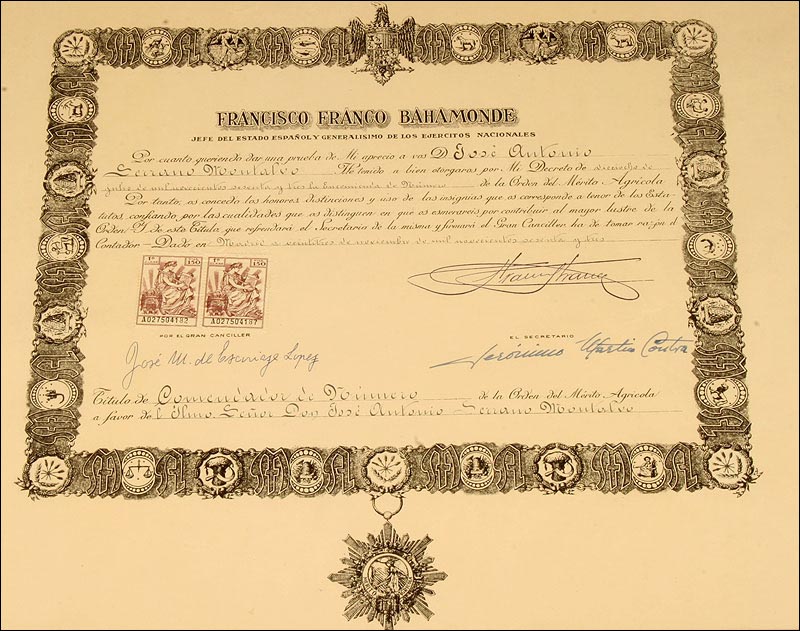 FRANCISCO FRANCO BAHAMONDE
JEFE DEL ESTADO ESPAÑOL Y GENERALISIMO DE LOS EJERCITOS NACIONALES
Por cuanto queriendo dar una prueba de Mi aprecio a vos D José Antonio
Serrano Montalvo He tenido a bien otorgaros por Mi Decreto de dieciocho de
julio de mil novecientos sesenta y tres la Encomienda de Número de la Orden del Mérito Agrícola
Por tanto, os concedo los honores distinciones y uso de las insignias que os corresponde a tenor de los Esta-
tutos, confiando, por las cualidades que os distinguen en que os esmerareis por contribuir al mayor lustre de la
Orden. Y de este Título, que refrendará el Secretario de la misma y firmará el Gran Canciller ha de tomar razón el
Contador Dado en Madrid a veintitres de noviembre de mil novecientos sesenta y tres
1ª 150 1ª 150
A0275041 A027504187
POR EL GRAN CANCILLER
EL SECRETARIO
José M. de Lopez
Jerónimo Martin
Título de Comendador de Número de la Orden del Mérito Agrícola
a favor del Ilmo. Señor Don José Antonio Serrano Montalvo